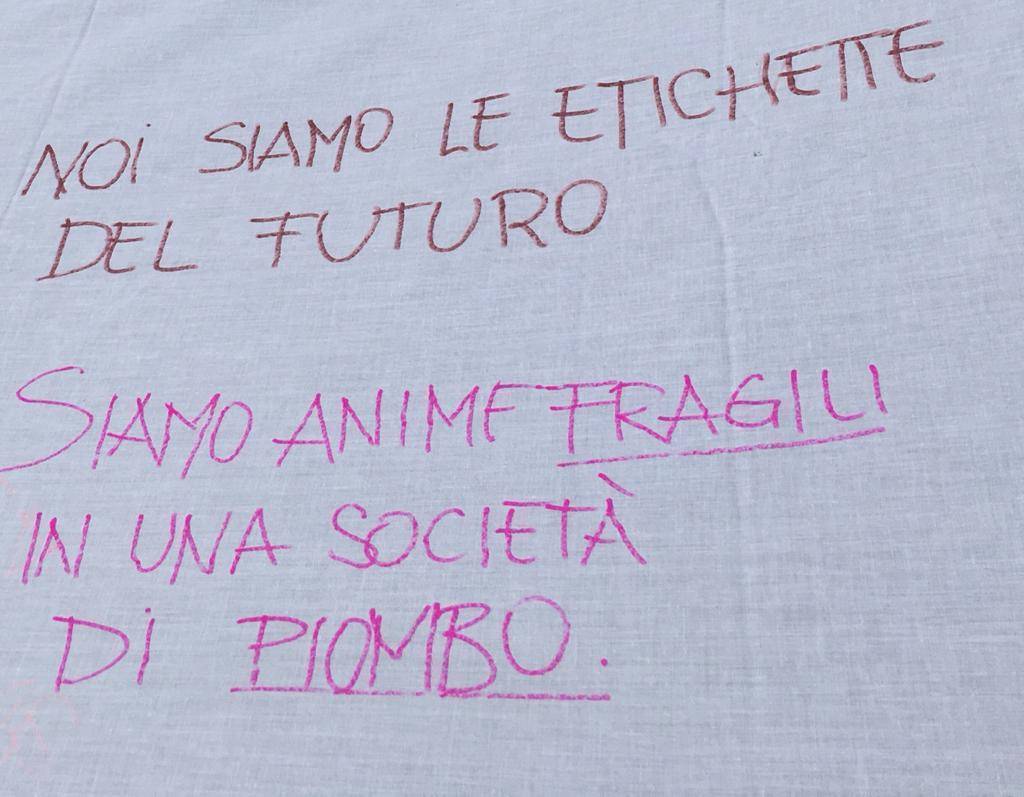 NOI SIAMO LE ETICHETTE
DEL FUTURO
SIAMO ANIME FRAGILI
IN UNA SOCIETÀ
DI PIOMBO.